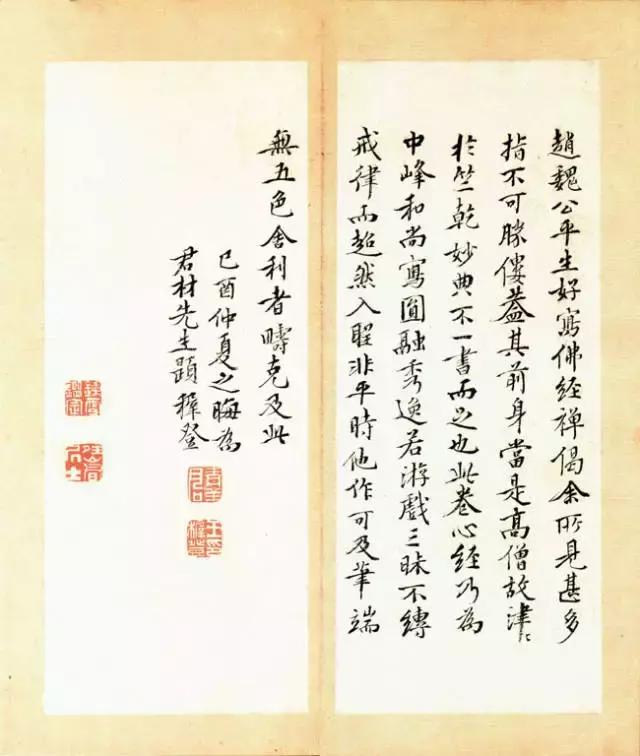 趙魏公平生好寫佛經禅偈余所見甚多
指不可勝僂蓋其前身當是高僧故津〻
於竺乾妙典不一書而足也此卷心經乃為
中峰和尚寫圓融秀逸若游戲三昧不縛
戒律而超然入聖非平時他作可及筆端
無五色舍利者疇克及此
己酉仲夏之晦為
君材先生題穉登